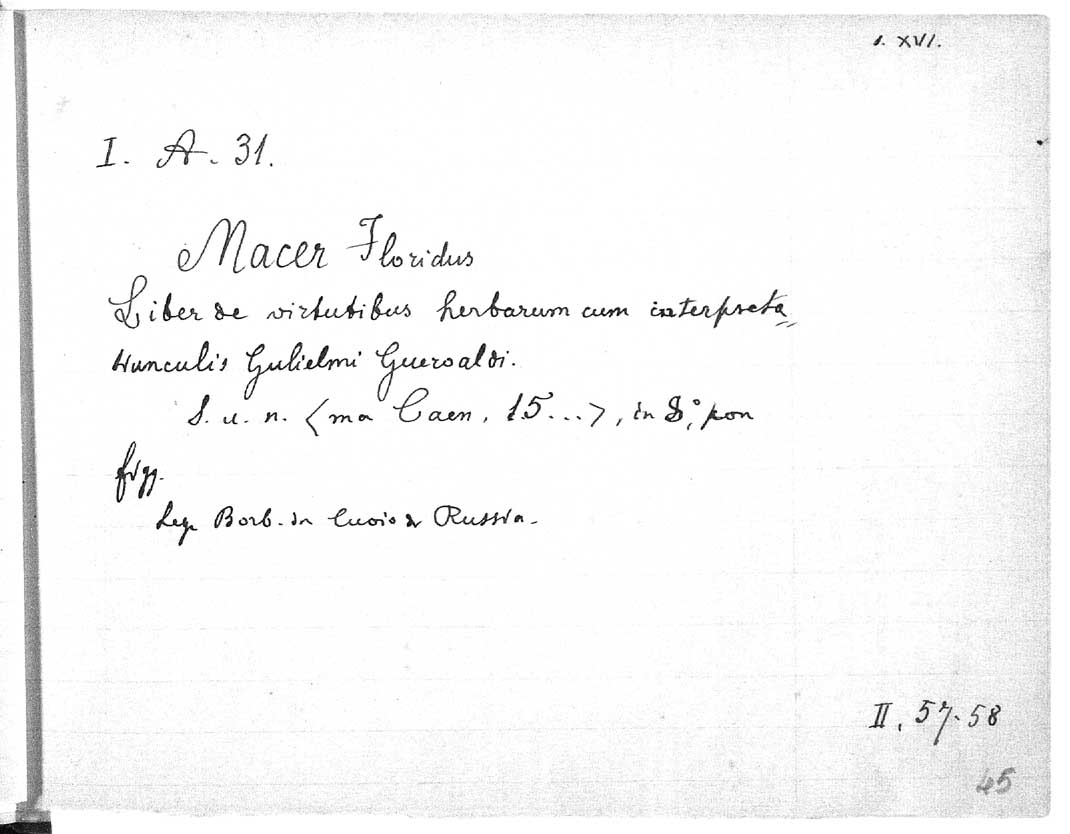 s. XVI.
I. A. 31.
Macer Floridus
Liber de virtutibus herbarum cum interpreta=
tiunculis Gulielmi Gueroaldi.
S. u. n. (ma Caen, 15...), in 8°, con
figg.
Leg. Borb. in cuoio di Russia.
II, 57-58
45